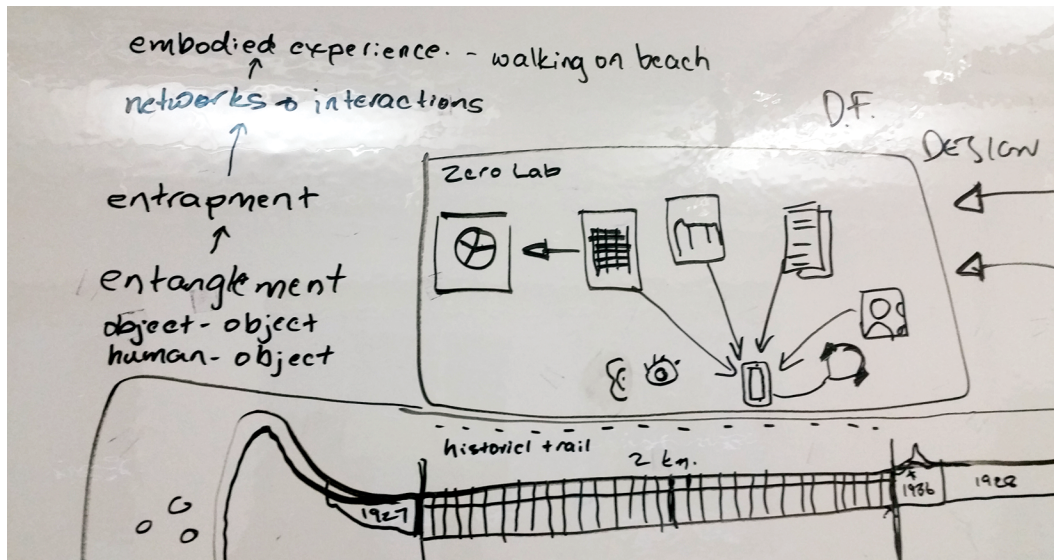 embodied experience. - walking on beach
networks + interactions
entrapment
entanglement
object - object
human - object
D.F.
DESIGN
Zero Lab
historicl trail
2 km.
1927
1936
1928